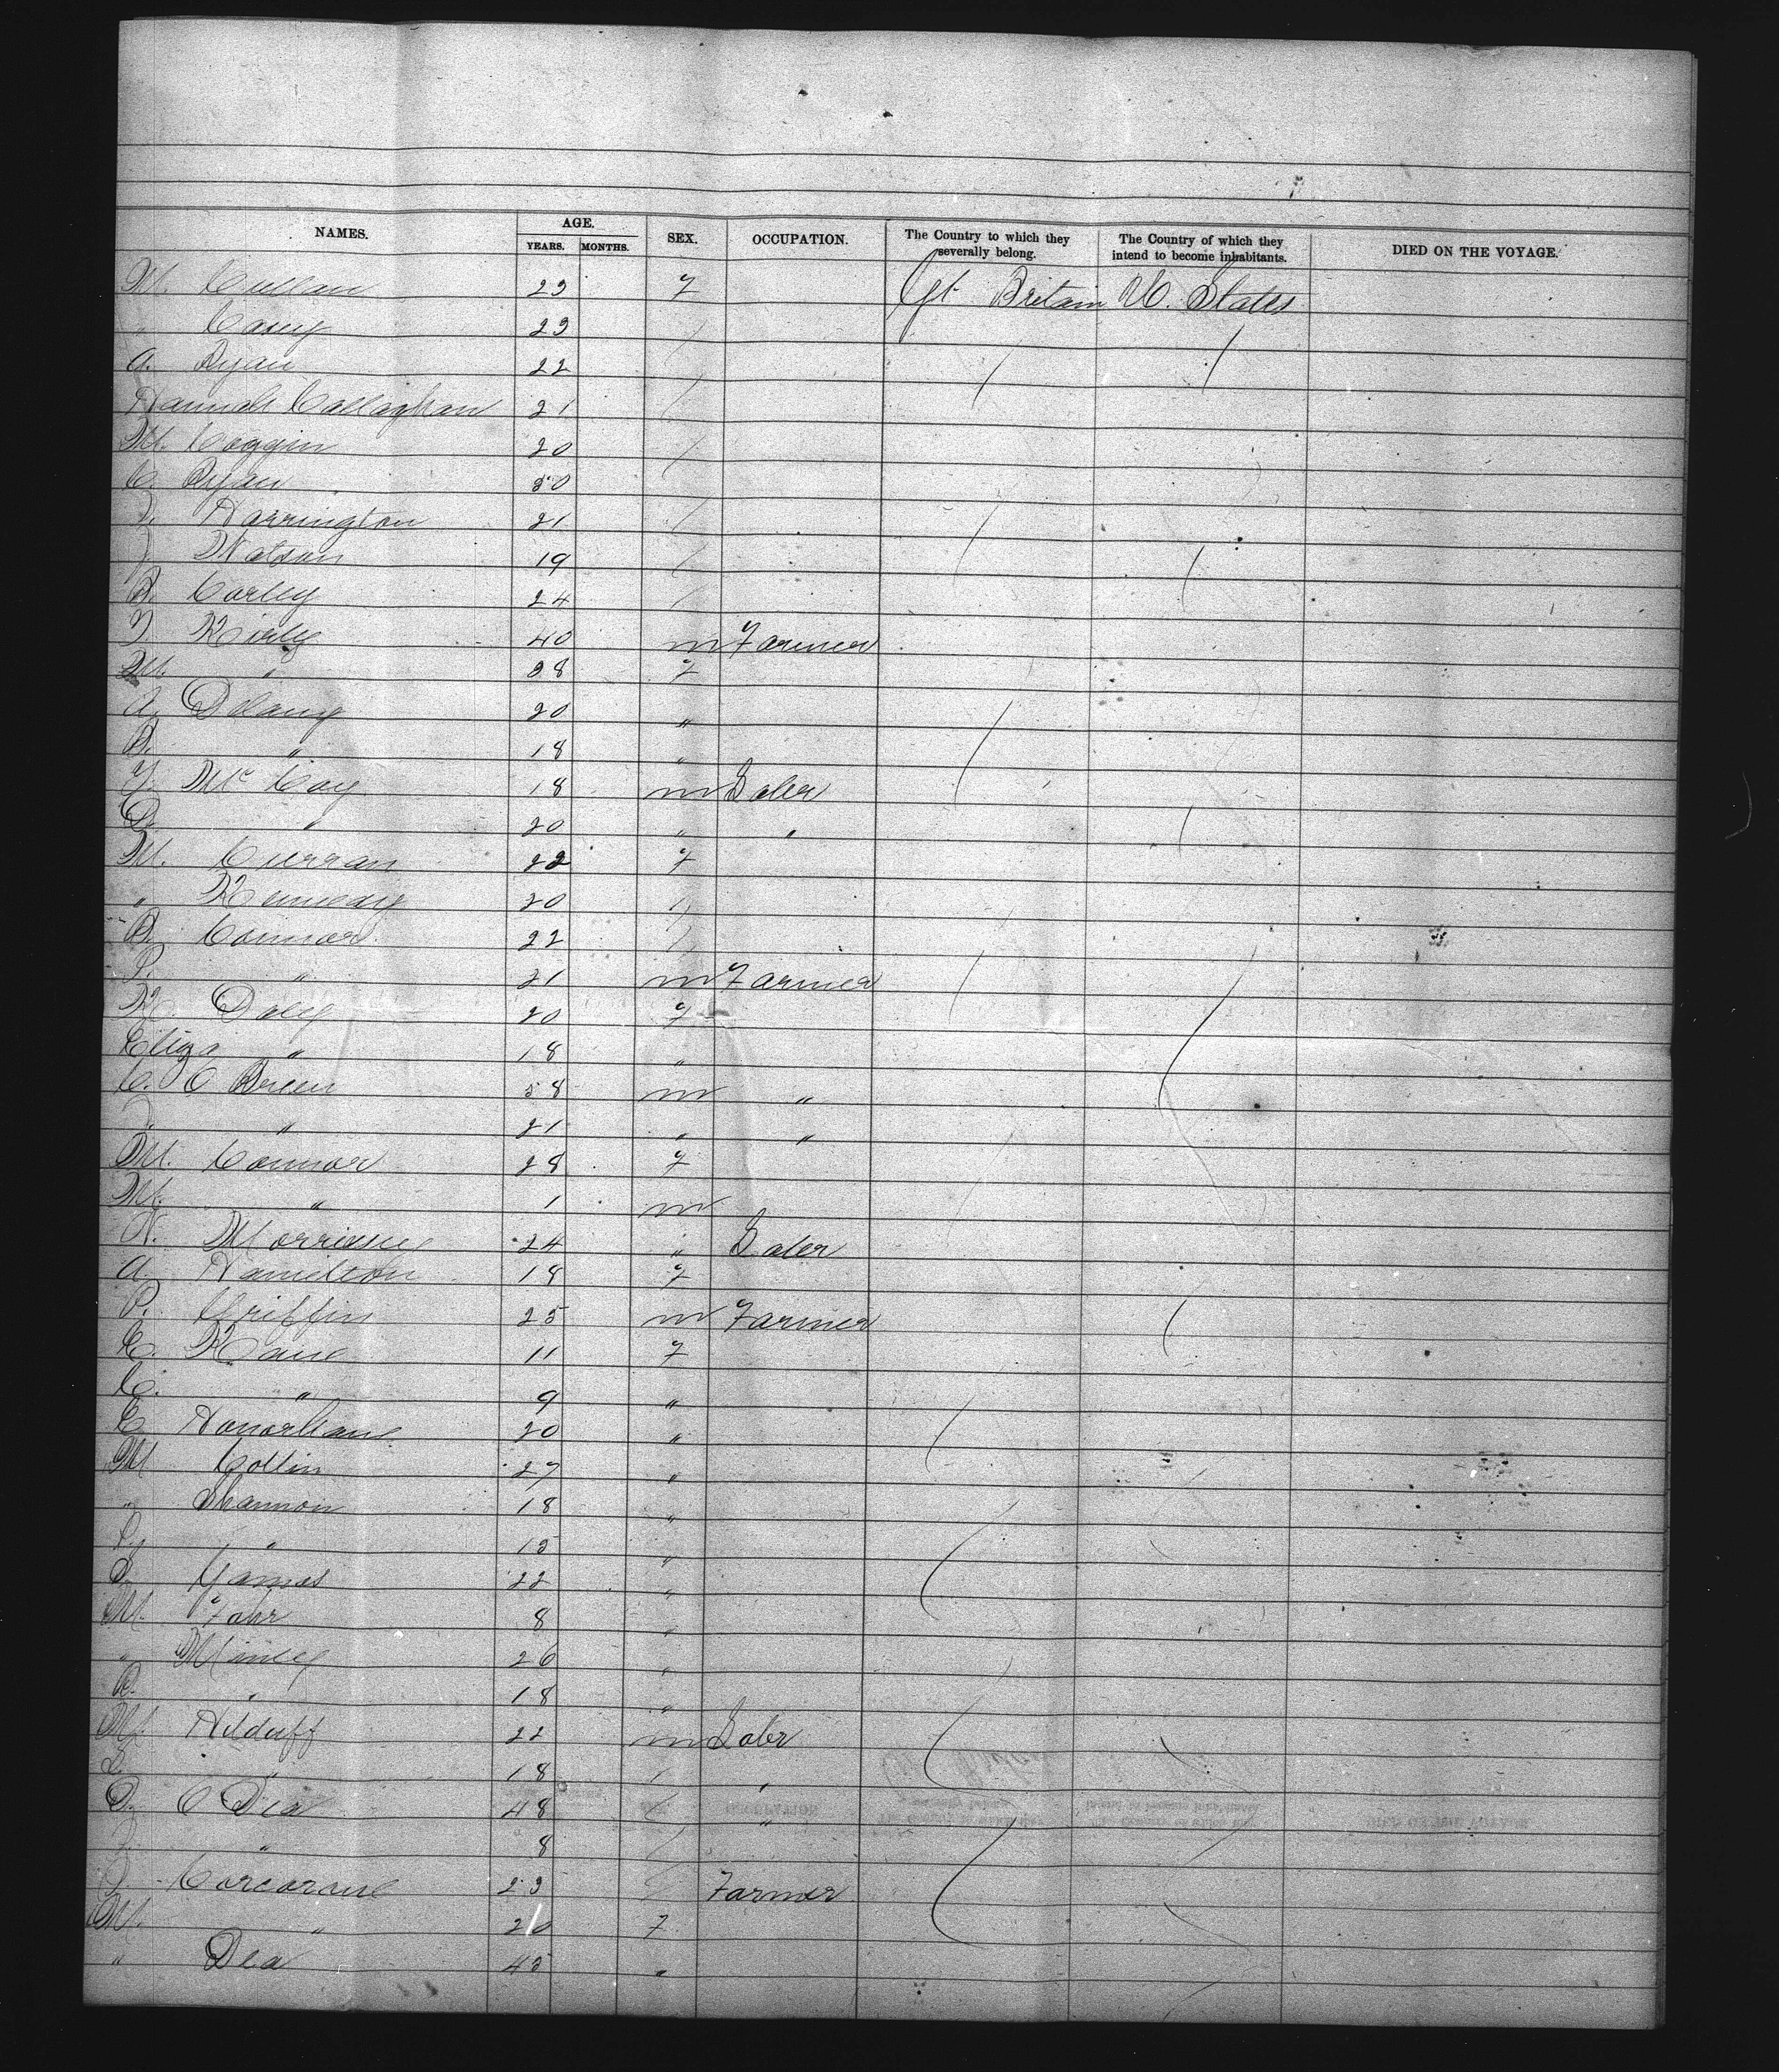 NAMES. AGE. SEX. OCCUPATION. The Country to which they severally belong. The Country of which they intend to become inhabitants. DIED ON THE VOYAGE.
YEARS. MONTHS.
M. Cullan 23 F Gt Britain U. States
" Casey 23
A. Ryan 22
Hannah Callaghan 21
M. Coggin 20
C. Ryan 50
Harrington 21
J. Watson 19
B. Corley 24
T. Kirly 40 m Farmer
M. " 38 F
A. Delany 20 "
B. " 18 "
Mc Coy 18 m Labr
" 20 " "
M. Curran 22 F
" Kennedy 20
B. Connor 22
P. " 21 m Farmer
K. Daly 20 F
Eliza " 18 "
C. O Brien 58 m "
" 21 " "
M. Connor 28 F
M. " 1 m
N. Morrissey 24 " Labr
A. Hamilton 18 F
P. Griffin 25 m Farmer
E. Kane 11 F
C. " 9 "
E Honorhane 20 "
M Collin 27 "
" Shannon 18 "
" 15 "
James 22 "
M. Fahr 8 "
" Minley 26 "
" 18 "
M. Hilduff 22 m Labr
" 18 "
D. O Dea 48 "
" 8
Corcorane 23 Farmer
M. " 20 F
" Dea 45 "